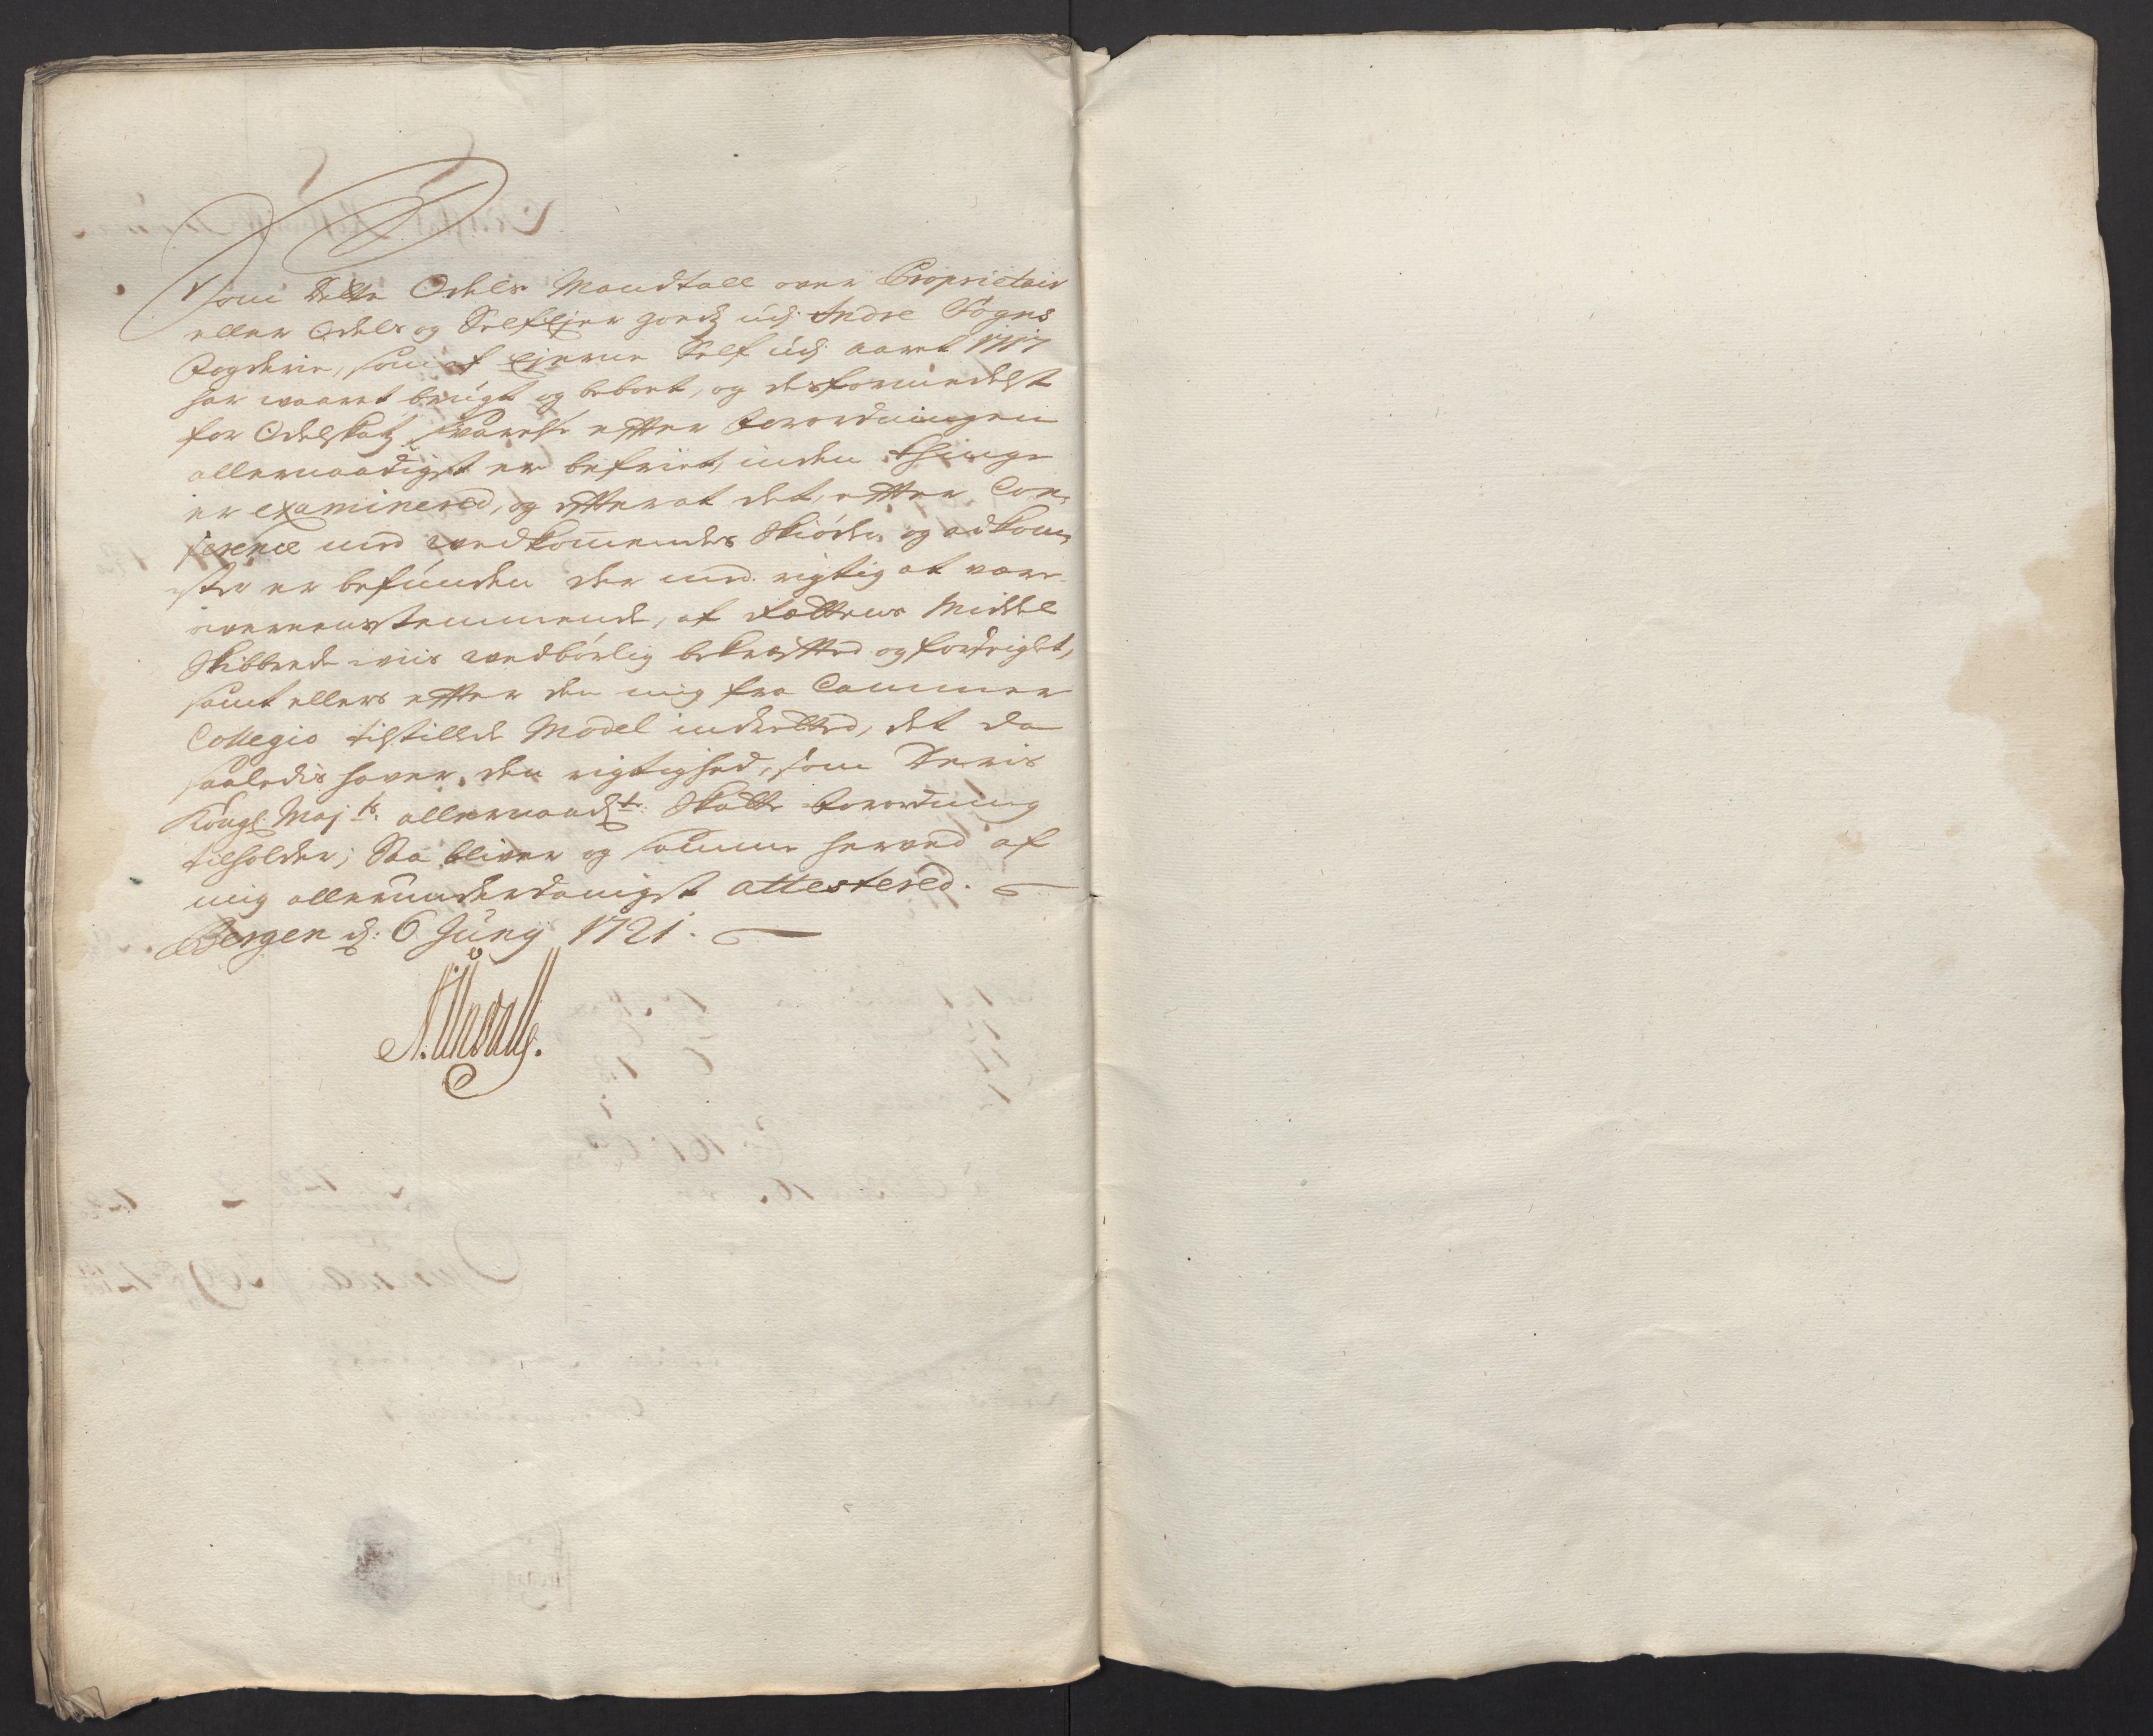 Som dette Odels Mandtall over Proprietair
eller Odels og Selfejer goedz udj Indre Sogns
Fogderie, som af Ejerne Self udj aaret 1717
har waaret brugt og beboet, og desformedelst
for Odelskatz svarelse effter Forordningen
allernaadigst er befriet, inden thinge
er examinered, og effterat det, effter Con-
ference med wedkommendes Skiøder og adkom-
ster er befunden der med rigtig at være
overeensstemmende, af Rættens Middel
Skibbrede wiis wedbørlig bekræffted og forseiglet,
samt ellers effter den mig fra Cammer
Collegio tilstillede Model indretted, det da
saaledis haver den rigtighed, som Deris
Kongl. Maj.ts allernaad.ste Skatte Forordning
tilholder; Saa bliver og samme herved af
mig allerunderdanigst attestered.
Bergen d. 6 Juny 1721.